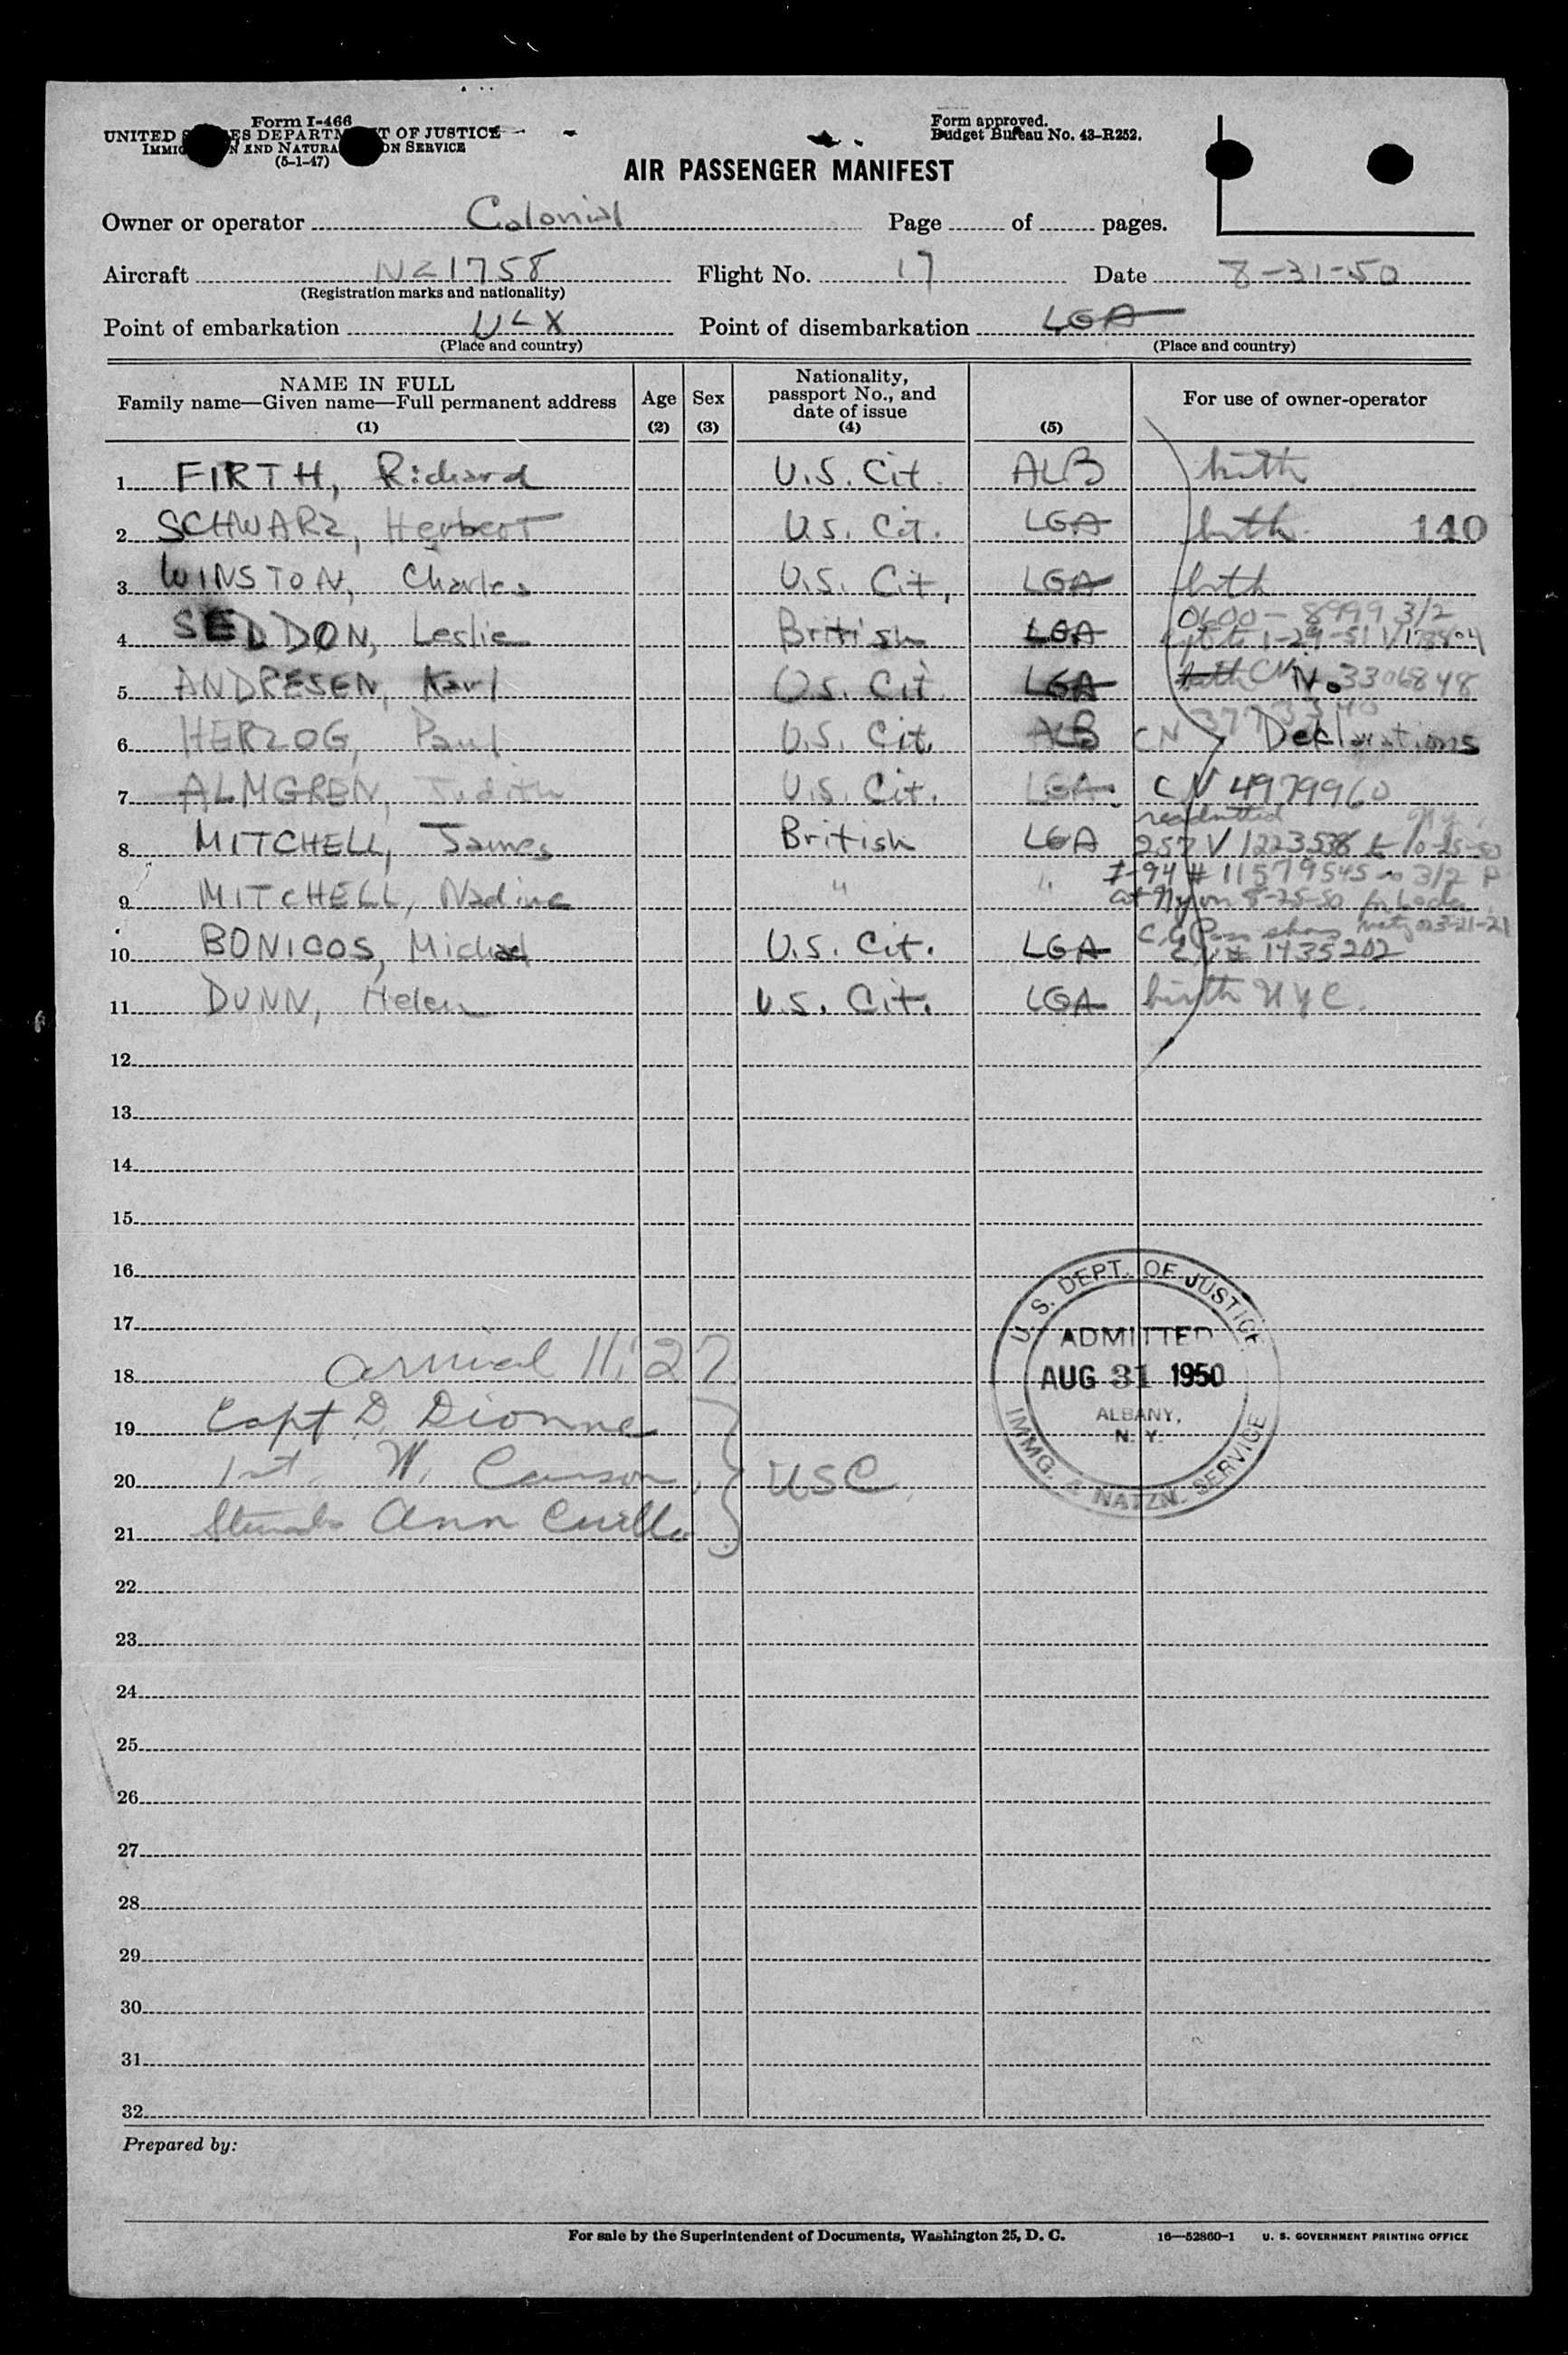 Form I-466
UNITED S ES DEPARTM T OF JUSTICE
IMMIG N AND NATURA ON SERVICE
(5-1-47)
Form approved.
Budget Bureau No. 43-R252.
AIR PASSENGER MANIFEST
Owner or operator Colonial Page of pages.
Aircraft NC1758 Flight No. 17 Date 8-31-50
(Registration marks and nationality)
Point of embarkation ULX Point of disembarkation LGA
(Place and country) (Place and country)
NAME IN FULL
Family name—Given name—Full permanent address
(1)
Age
(2)
Sex
(3)
Nationality,
passport No., and
date of issue
(4)
(5)
For use of owner-operator
1 FIRTH, Richard U.S. Cit. ALB birth
2 SCHWARZ, Herbert U.S. Cit. LGA birth 140
3 WINSTON, Charles U.S. Cit. LGA birth
0600-8999 3/2
4 SEDDON, Leslie British LGA 1-29-51
5 ANDRESEN, Karl U.S. Cit. LGA birth CN No. 3306848
6 HERZOG, Paul U.S. Cit. ALB CN 3773340 Declarations
7 ALMGREN, Judith U.S. Cit. LGA CN 4979960
readmitted
8 MITCHELL, James British LGA 257 V 10-25-50
I-94 # 11579545 3/2 P
9 MITCHELL, Nadine " " at Ny on 8-25-50
C.G. Pass shows 3-21-21
10 BONICOS, Michael U.S. Cit. LGA # 1435202
11 DUNN, Helen U.S. Cit. LGA birth NYC.
12
13
14
15
16
17
18 arrival 11:27
19 Capt D. Dionne
20 1st. W. Carson USC
21 Ann Cuello
U. S. DEPT. OF JUSTICE
ADMITTED
AUG 31 1950
ALBANY,
N. Y.
IMMG. & NATZN. SERVICE
22
23
24
25
26
27
28
29
30
31
32
Prepared by:
For sale by the Superintendent of Documents, Washington 25, D. C. 16—52860-1 U. S. GOVERNMENT PRINTING OFFICE